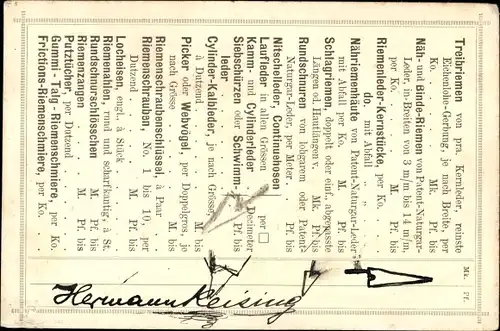 Mk. Pf.
Treibriemen von pra. Kernleder, reinste
Eichenlohe-Gerbung, je nach Breite, per
Ko. Mk. Pf. bis
Näh- und Binde-Riemen von Patent-Naturgar-
Leder, in Breiten von 3 m/m bis 14 m/m,
per Ko. M. Pf. bis
Riemenleder-Kernstücke, per Ko.
do. mit Abfall " "
Nähriemenhäute von Patent-Naturgar-Leder
mit Abfall per Ko. M. Pf. bis
Schlagriemen, doppelt oder einf. abgepasste
Längen od. Hautlängen v. Mk. Pf. bis
Rundschnuren von lohgarem oder Patent-
Naturgar-Leder, per Meter. Pf. bis
Nitschelleder, Continuehosen
Laufleder in allen Grössen per □
Kamm- und Cylinderleder Decimeter
Siebschürzen oder Schwimm- Pf. bis
leder
Cylinder-Kalbleder, je nach Grösse,
à Dutzend M. bis
Picker oder Webvögel, per Doppelgros, je
nach Grösse M. bis
Riemenschraubenschlüssel, à Paar
Riemenschrauben, No. 1 bis 10, per
Dutzend M. Pf. bis
Locheisen, engl., à Stück M. Pf. bis
Riemenahlen, rund und scharfkantig, à St.
Rundschnurschlösschen M. Pf. bis
Riemenzangen M. Pf. bis
Putztücher, per Dutzend
Gummi-Talg-Riemenschmiere, per Ko.
Frictions-Riemenschmiere, per Ko.
Hermann Reising